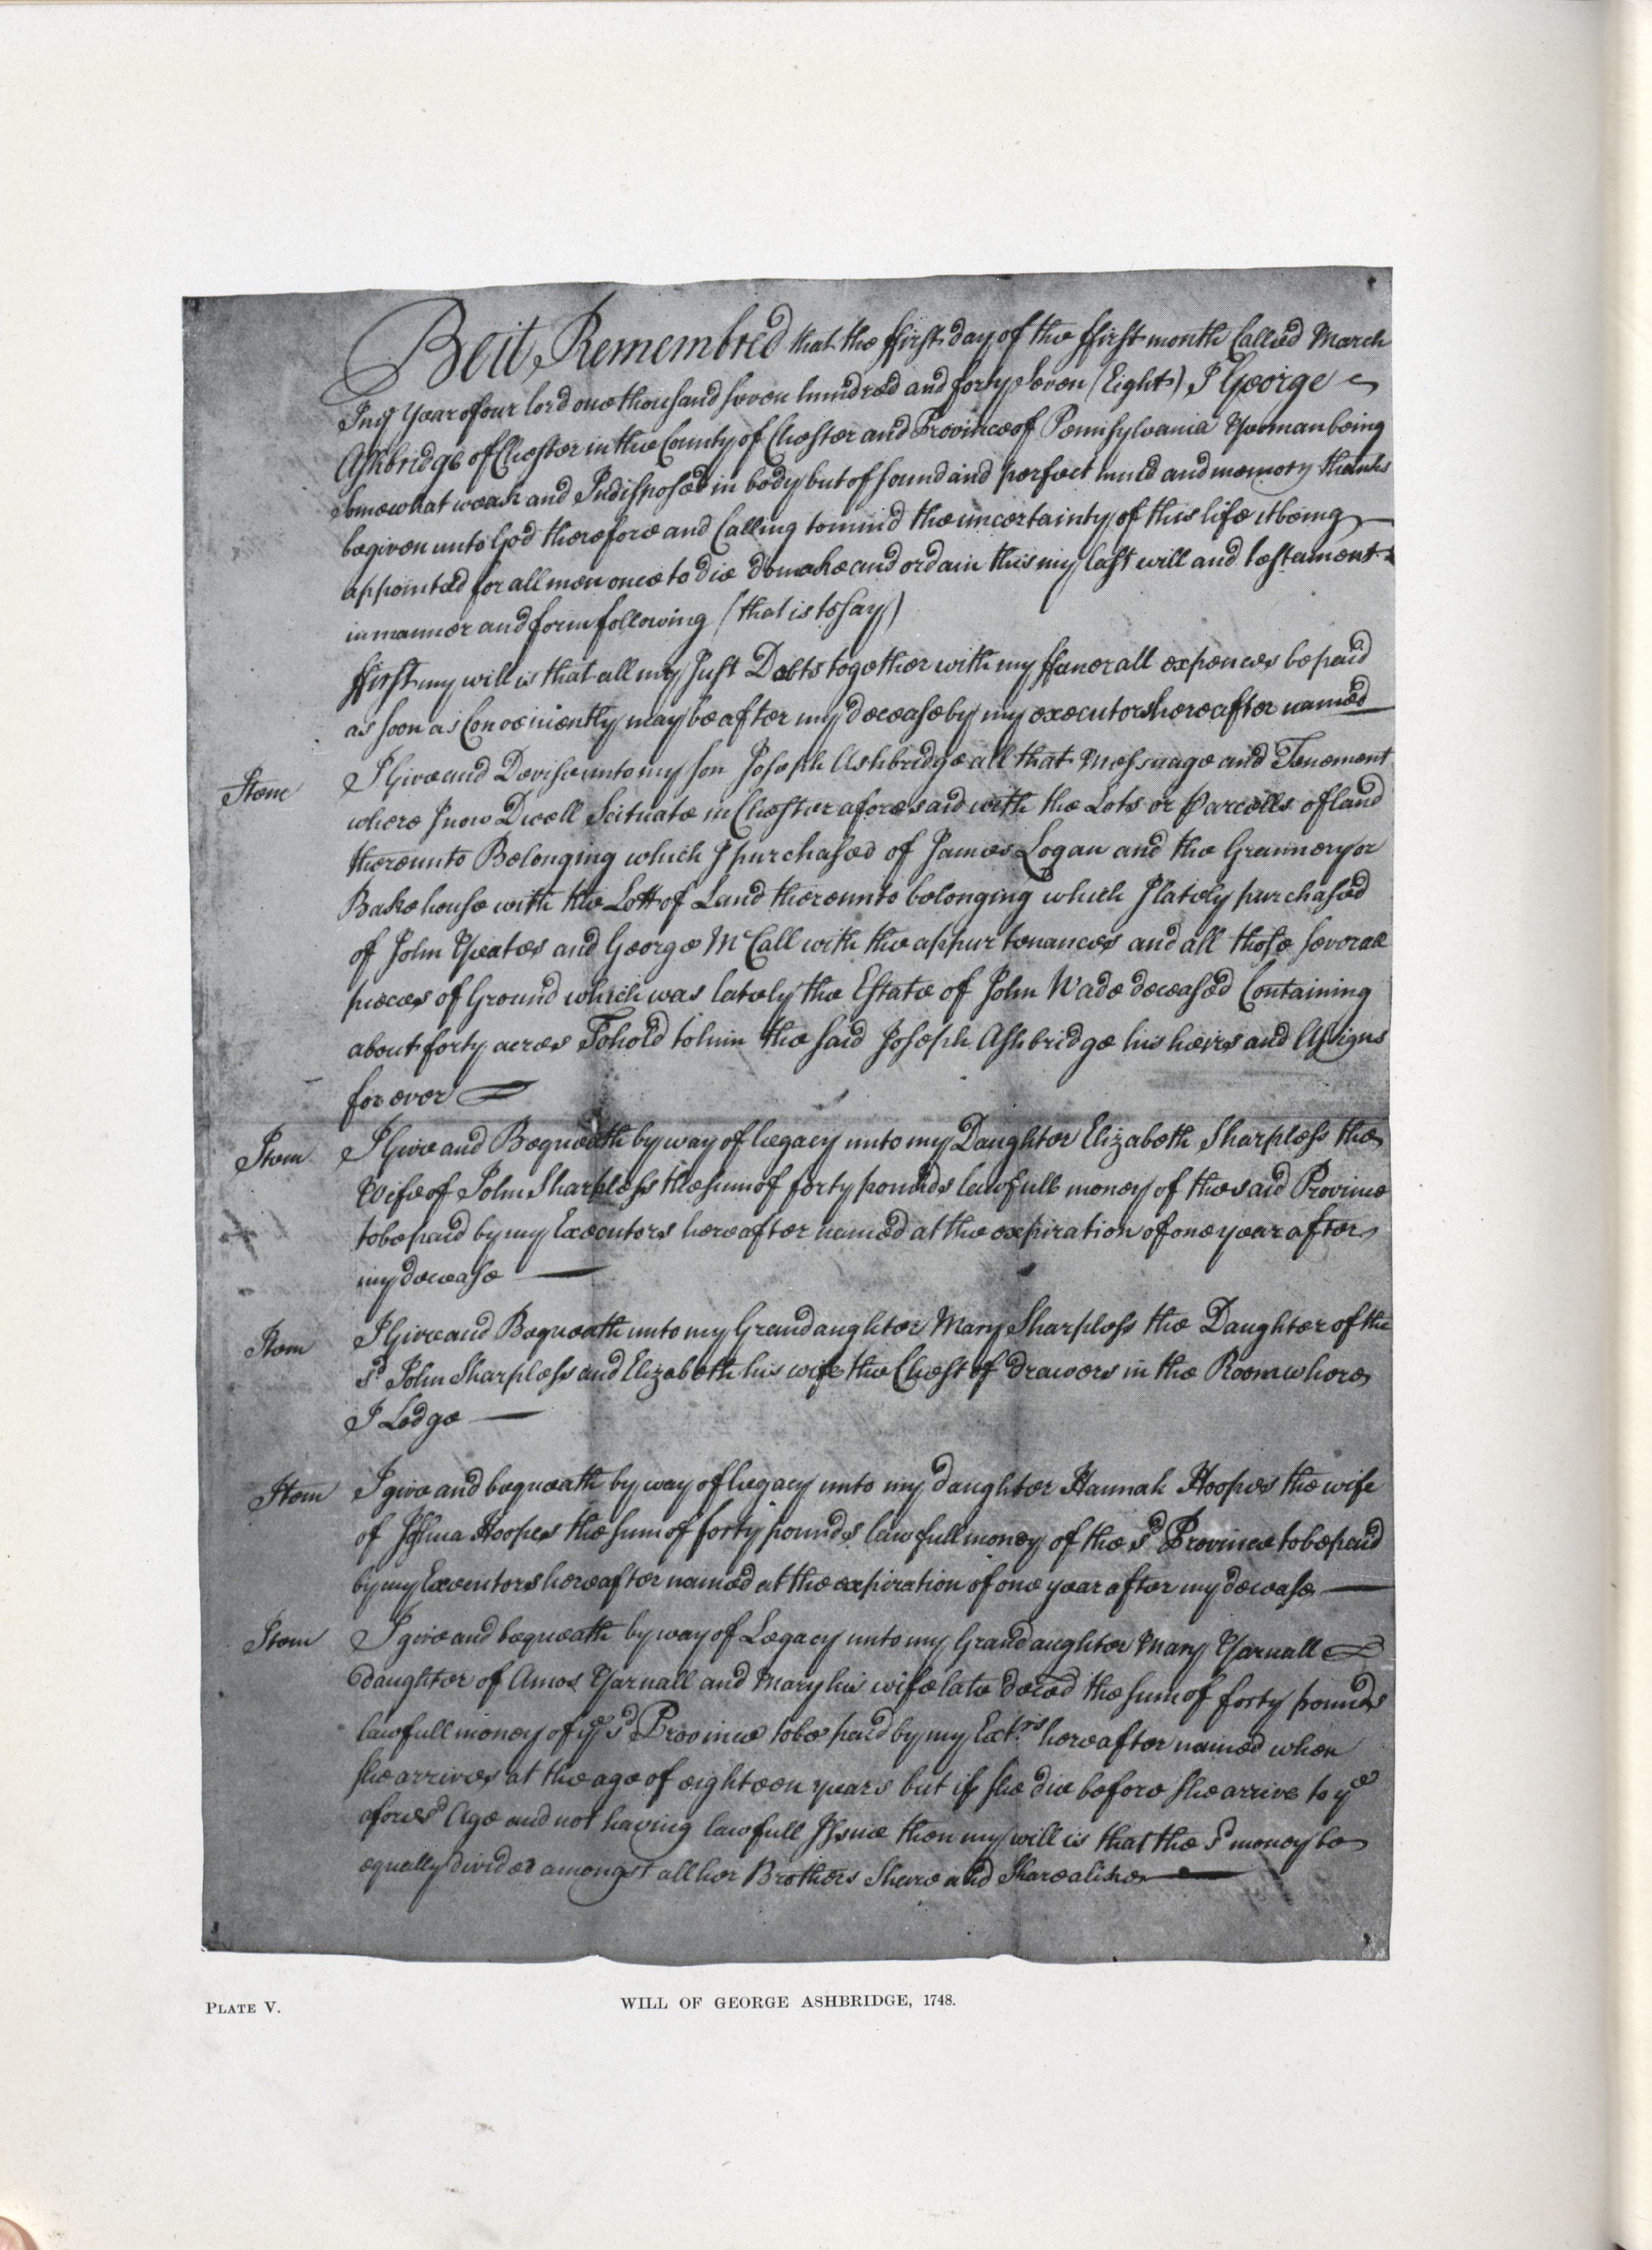 Beit Remembred that the ffirst day of the ffirst month Called March
In ye Year of our lord one thousand seven hundred and forty seven (Eight) I George
Ashbridge of Chester in the County of Chester and Province of Pennsylvania Yeoman being
Somewhat weak and Indisposed in body but of sound and perfect mind and memory thanks
be given unto God therefore and Calling to mind the uncertainty of this life it being
appointed for all men once to die do make and ordain this my last will and testament
in manner and form following (that is to say)
ffirst my will is that all my Just Debts together with my ffunerall expences be paid
as soon as Conveniently may be after my decease by my executors hereafter named
Item I Give and Devise unto my son Joseph Ashbridge all that Messuage and Tenement
where I now Dwell Scituate in Chester aforesaid with the Lots or Parcells of land
thereunto Belonging which I purchased of James Logan and the Grannery or
Bakehouse with the Lott of Land thereunto belonging which I lately purchased
of John Yeates and George McCall with the appurtenances and all those severall
pieces of Ground which was lately the Estate of John Wade deceased Containing
about forty acres To hold to him the said Joseph Ashbridge his heirs and Assigns
for ever
Item I Give and Bequeath by way of legacy unto my Daughter Elizabeth Sharpless the
Wife of John Sharpless the sum of forty pounds lawfull money of the said Province
to be paid by my Executors hereafter named at the expiration of one year after
my decease
Item I Give and Bequeath unto my Grandaughter Mary Sharpless the Daughter of the
sd John Sharpless and Elizabeth his wife the Chest of drawers in the Room where
I Lodge
Item I give and bequeath by way of legacy unto my daughter Hannah Hoopes the wife
of Joshua Hoopes the sum of forty pounds lawfull money of the sd Province to be paid
by my Executors hereafter named at the expiration of one year after my decease
Item I give and bequeath by way of Legacy unto my Grandaughter Mary Yarnall
daughter of Amos Yarnall and Mary his wife late deced the sum of forty pounds
lawfull money of ye sd Province to be paid by my Exts hereafter named when
she arrives at the age of eighteen years but if she die before she arrive to ye
aforesd Age and not having lawfull Issue then my will is that the sd money be
equally divided amongst all her Brothers Share and Share alike
PLATE V.
WILL OF GEORGE ASHBRIDGE, 1748.